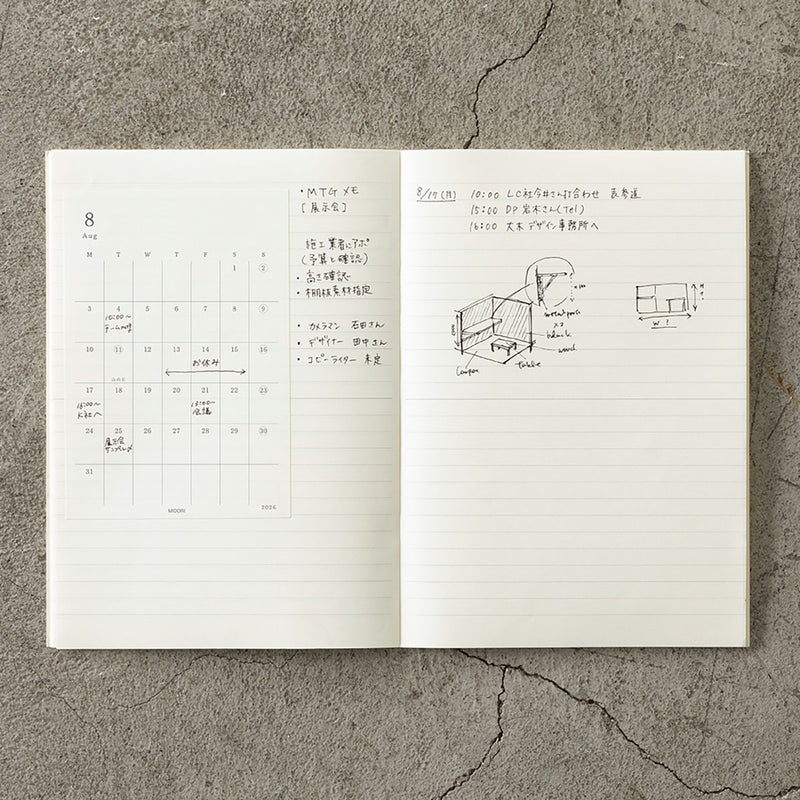 8
Aug
M T W T F S S
1 2
3 4 5 6 7 8 9
10:00〜
チームMTG
10 11 12 13 14 15 16
お休み
山の日
17 18 19 20 21 22 23
15:00〜
K社へ
13:00〜
会議
24 25 26 27 28 29 30
展示会
サンプル〆
31
MIDORI
2026
・MTGメモ
[展示会]
施工業者にアポ
(予算と確認)
・高さ確認
・棚板素材指定
・カメラマン 石田さん
・デザイナー 田中さん
・コピーライター 未定
8/17(月)
10:00 LC社今井さん打合わせ 表参道
15:00 DP 岩木さん(Tel)
16:00 大木デザイン事務所へ
x2
black
wood
table
W?
H?